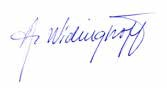 Ap Widinghoff